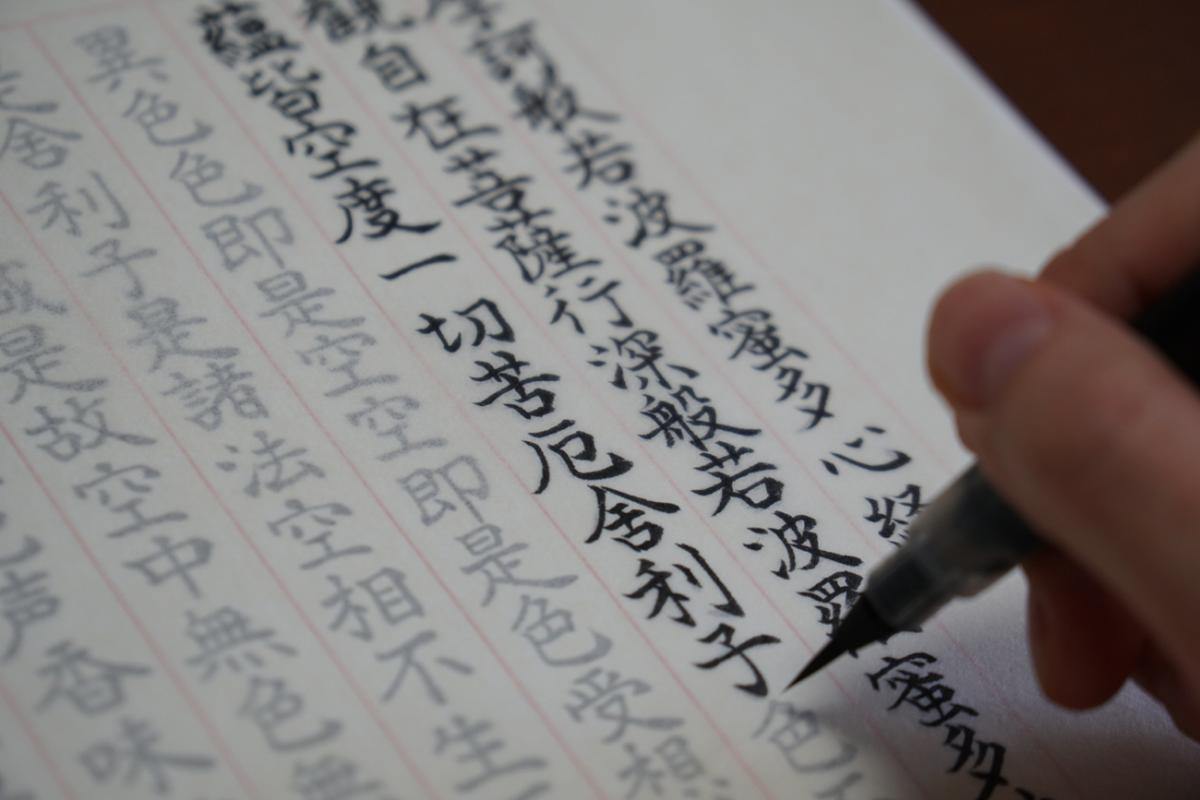 摩訶般若波羅蜜多心経
観自在菩薩行深般若波羅蜜多
蘊皆空度一切苦厄舎利子色
異色色即是空空即是色受想
是舎利子是諸法空相不生
減是故空中無色無
声香味